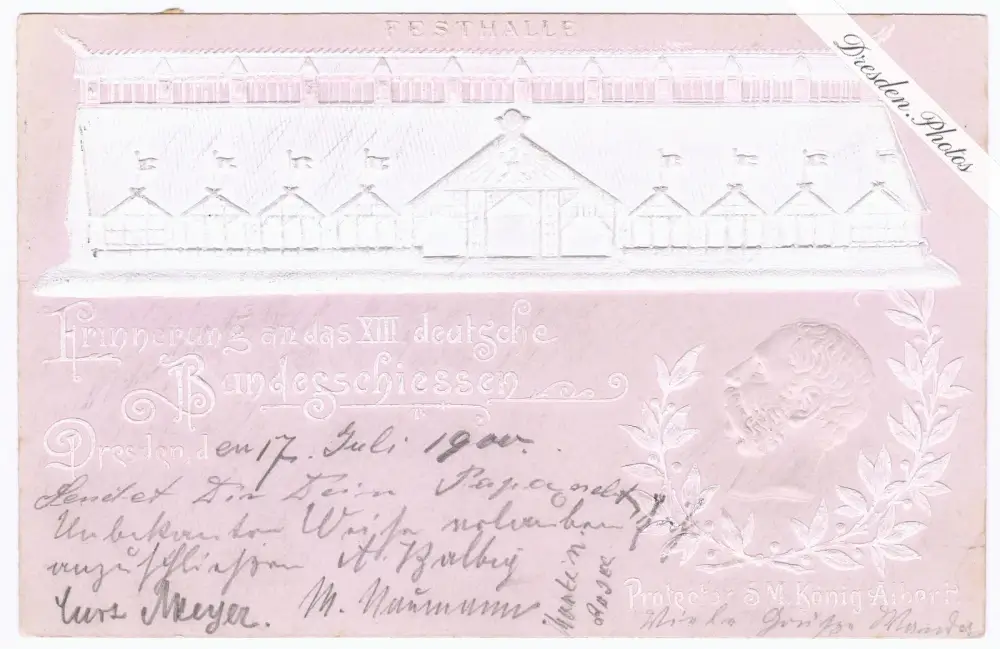 FESTHALLE
Dresden.Photos
Erinnerung an das XIII deutsche
Bundesschiessen
Dresden, den 17. Juli 1900.
Sendet Dir Dein Papa nebst
Unbekannter Weise erlauben
anzuschließen A. Balbig
Curt Meyer. M. Naumann
Protector S.M. König Albert
Viele Grüße